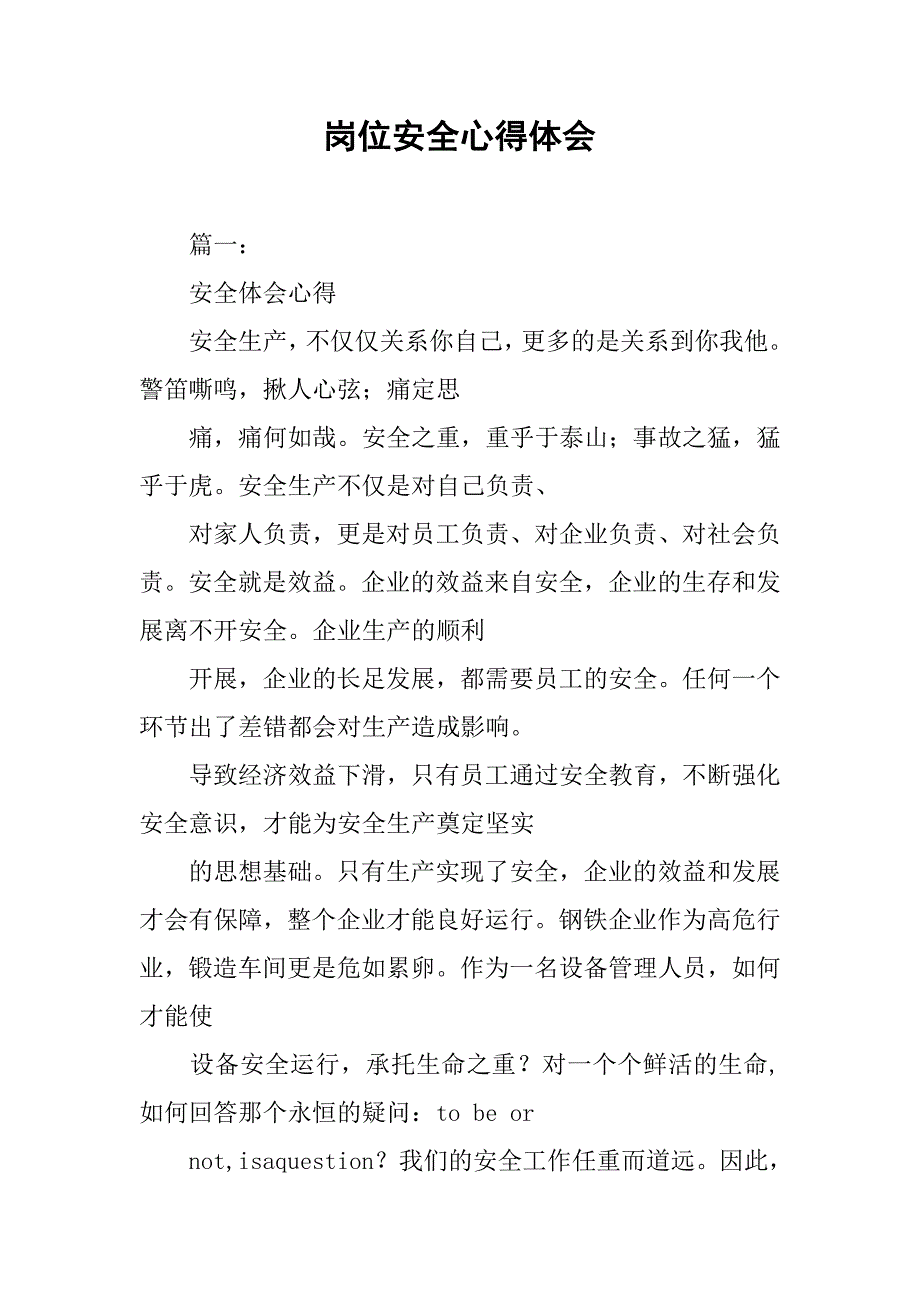 岗位安全心得体会
篇一：
安全体会心得
安全生产，不仅仅关系你自己，更多的是关系到你我他。
警笛嘶鸣，揪人心弦；痛定思
痛，痛何如哉。安全之重，重乎于泰山；事故之猛，猛
乎于虎。安全生产不仅是对自己负责、
对家人负责，更是对员工负责、对企业负责、对社会负
责。安全就是效益。企业的效益来自安全，企业的生存和发
展离不开安全。企业生产的顺利
开展，企业的长足发展，都需要员工的安全。任何一个
环节出了差错都会对生产造成影响。
导致经济效益下滑，只有员工通过安全教育，不断强化
安全意识，才能为安全生产奠定坚实
的思想基础。只有生产实现了安全，企业的效益和发展
才会有保障，整个企业才能良好运行。钢铁企业作为高危行
业，锻造车间更是危如累卵。作为一名设备管理人员，如何
才能使
设备安全运行，承托生命之重？对一个个鲜活的生命，
如何回答那个永恒的疑问：to be or
not,isaquestion？我们的安全工作任重而道远。因此，